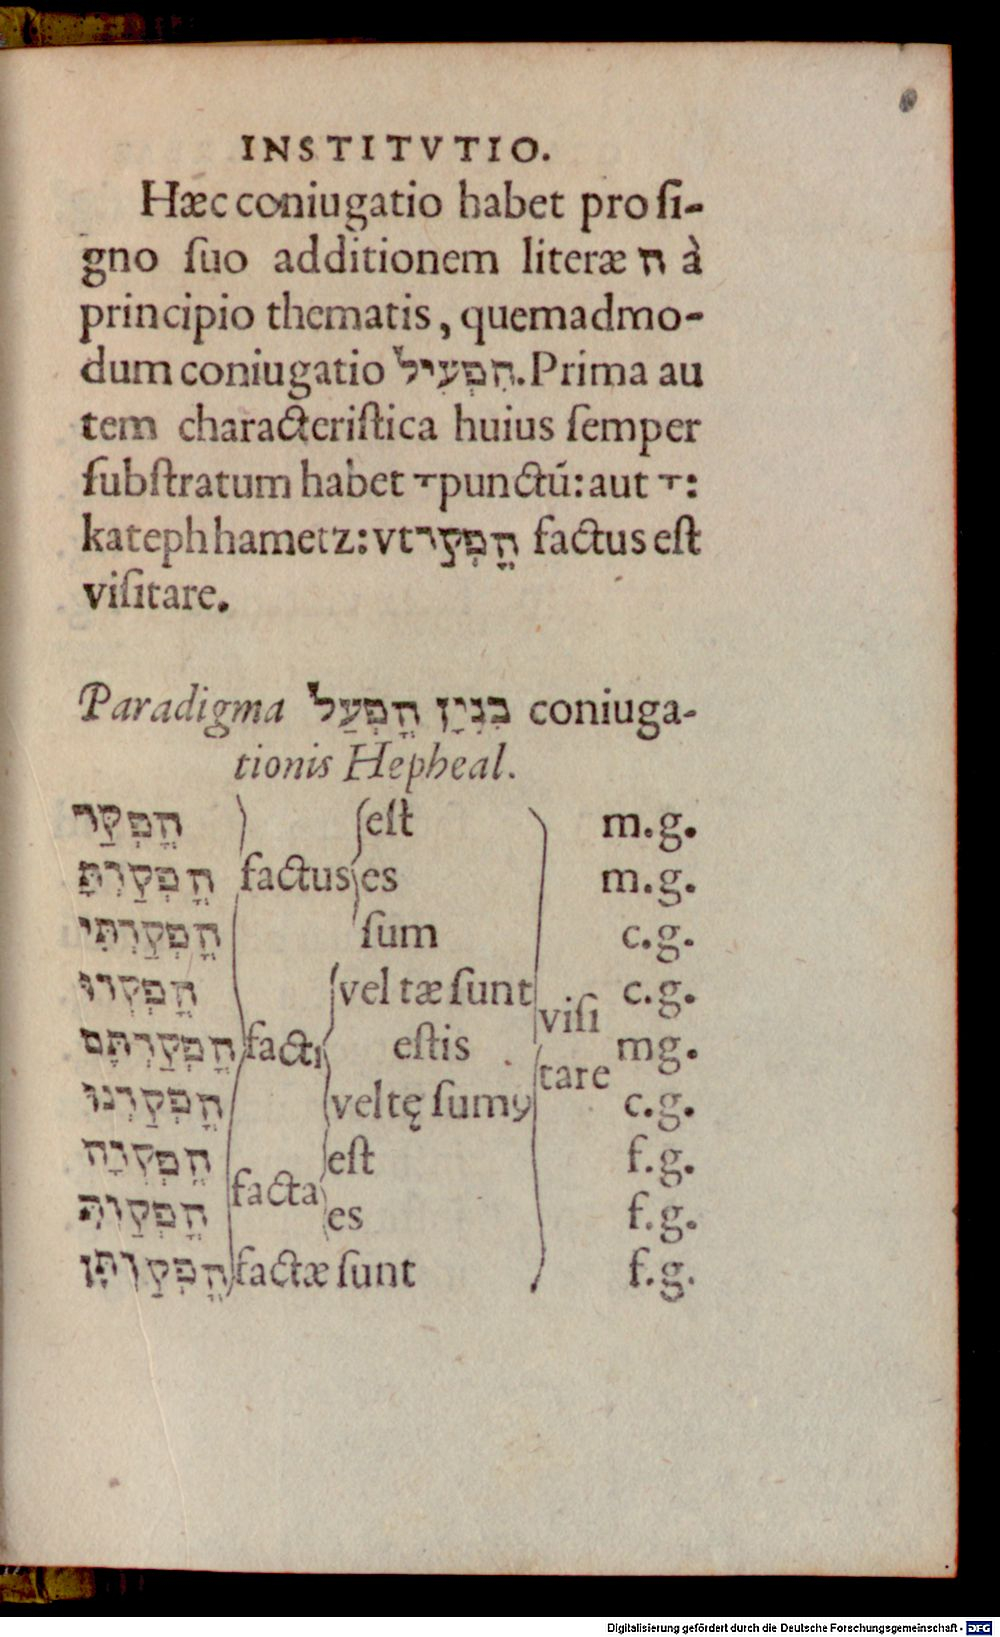 INSTITVTIO.
Hæc coniugatio habet pro ſi-
gno ſuo additionem literæ ה à
principio thematis, quemadmo-
dum coniugatio הִפְעִיל. Prima au
tem characteriſtica huius ſemper
ſubſtratum habet ָ punctũ: aut ֳ
kateph hametz: vt הֳפְקַד factus eſt
viſitare.
Paradigma בִּנְיָן הֳפְעַל coniuga-
tionis Hepheal.
הֳפְקַד eſt m.g.
הֳפְקַדְתָּ factus es m.g.
הֳפְקַדְתִּי ſum c.g.
הֳפְקְדוּ vel tæ ſunt c.g.
viſi
הֳפְקַדְתֶּם facti eſtis mg.
tare
הֳפְקַדְנוּ vel tę ſumꝰ c.g.
הֳפְקְדָה eſt f.g.
facta
הֳפְקַדְתְּ es f.g.
הֳפְקַדְתֶּן factæ ſunt f.g.
Digitalisierung gefördert durch die Deutsche Forschungsgemeinschaft - DFG